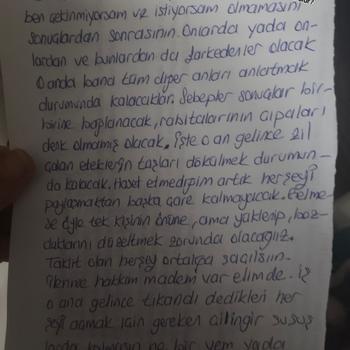 ben çekinmiyorsam ve istiyorsam olmamasını
sonuçlardan sonrasının. Onlarda yada on-
lardan ve bunlardan da farkedenler olacak
O anda bana tüm diğer anları anlatmak
durumunda kalacaklar. Sebepler sonuçlar bir-
birine bağlanacak, rabıtalarının
denk olmamış olacak. İşte o an gelince zil
çalan eteklerin taşları dökülmek durumun-
da kalacak. Haset etmediğim artık herşeyi
paylaşmaktan başka çare kalmayacak. Gelme-
se öyle tek kişinin önüne, ama yaklaşıp, boz-
duklarını düzeltmek zorunda olacağız.
Taklit olan herşey ortalığa saçılsın.
hakkım madem var elimde. iş
o ana gelince tıkandı dedikleri her
şeyi açmak için gereken çilingir susuş
larda kalmasın ne bir yem yada